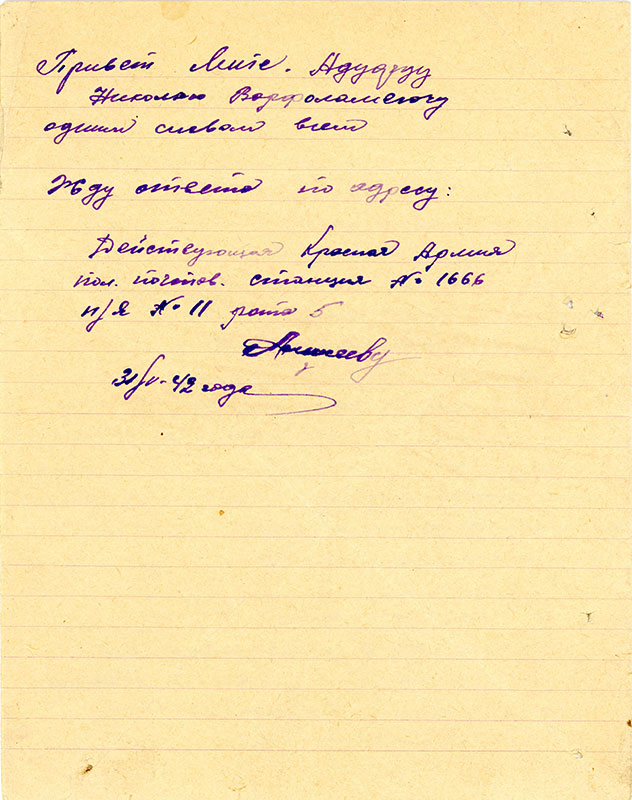 Привет Мите.
Николаю Варфоламеечу
одним словом всем
Жду ответа по адресу:
Действующая Красная Армия
пол. почтов. станция № 1666
п/я № 11 рота 5
42 года